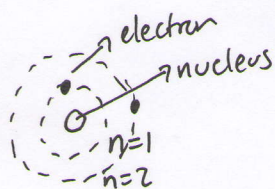 electron
nucleus
n=1
n=2